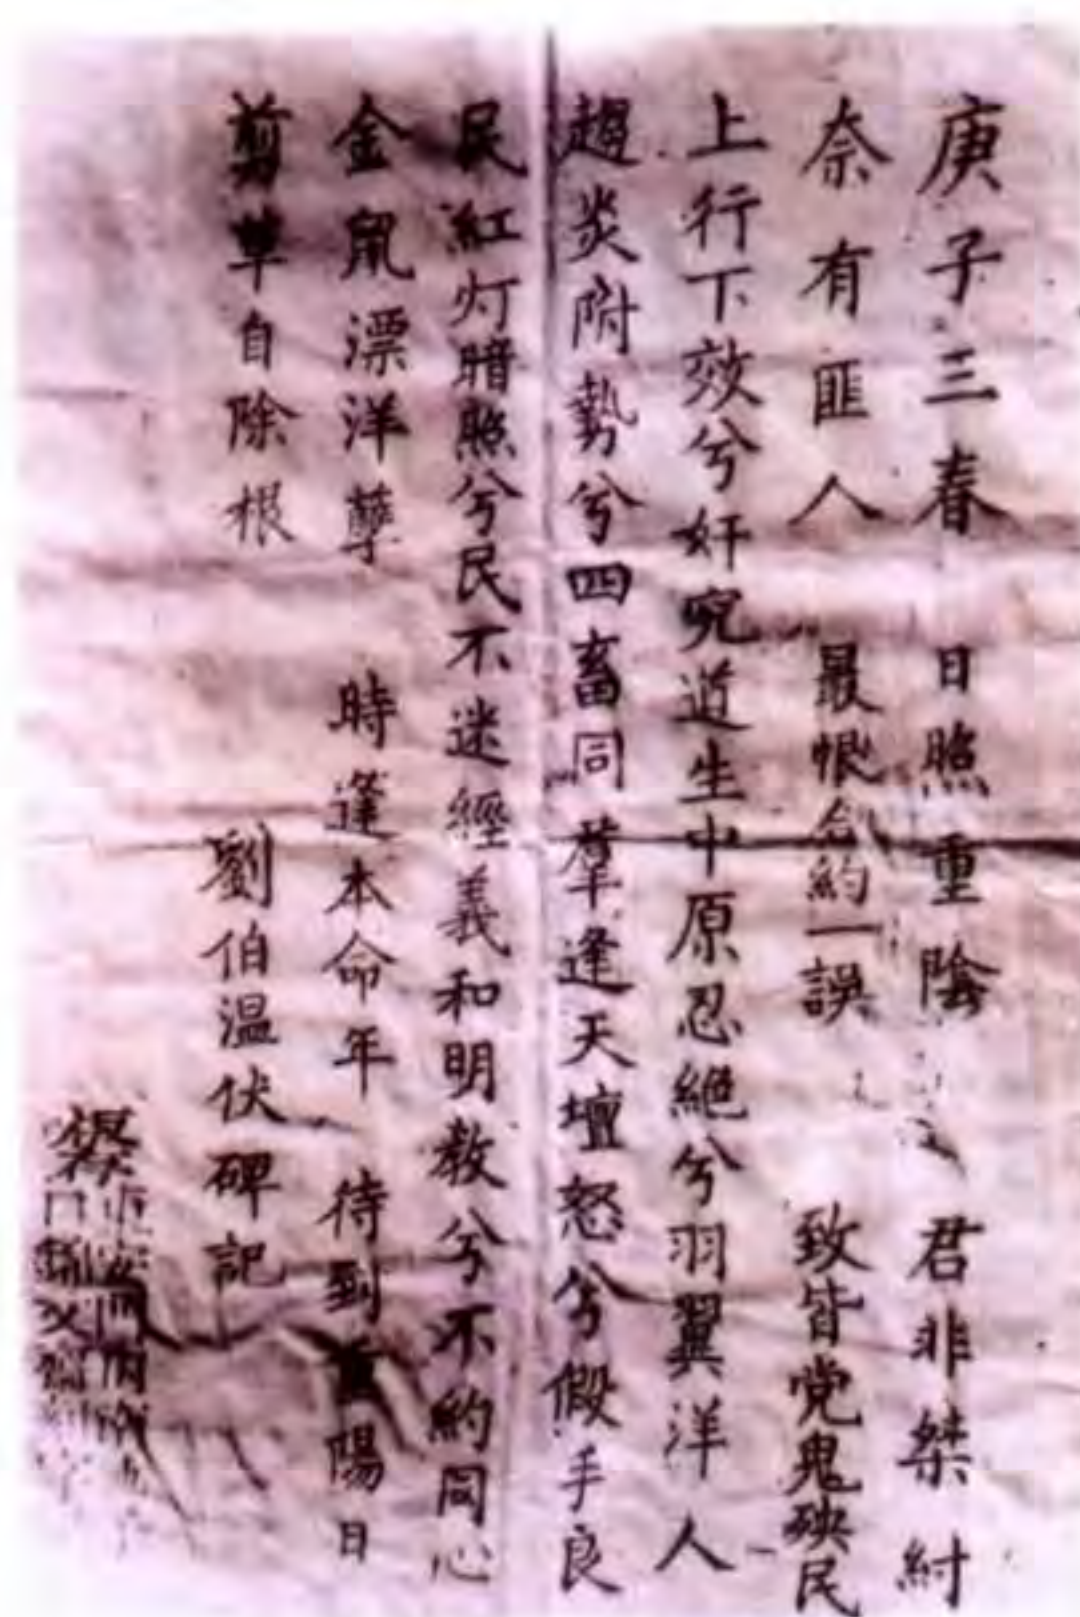 庚子三春 日照重陰 君非桀紂
奈有匪人 最恨合約一誤 致皆党鬼殃民
上行下效兮奸宄道生中原忍絕兮羽翼洋人
趨炎附勢兮四畜同羣逢天壇怒兮假手良
民紅灯暗照兮民不迷經義和明教兮不約同心
金鼠漂洋孽 時逢本命年 待到重陽日
剪草自除根
劉伯温伏碑記